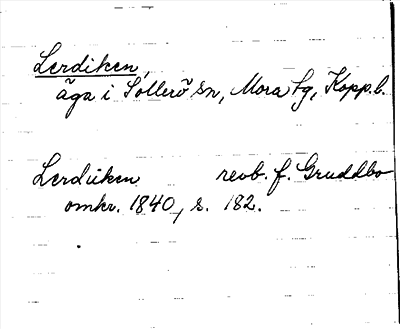 Lerdiken,
äga i Sollerö sn, Mora tg, Kopp.l.
Lerdiken revb. f. Gruddbo
omkr. 1840, s. 182.